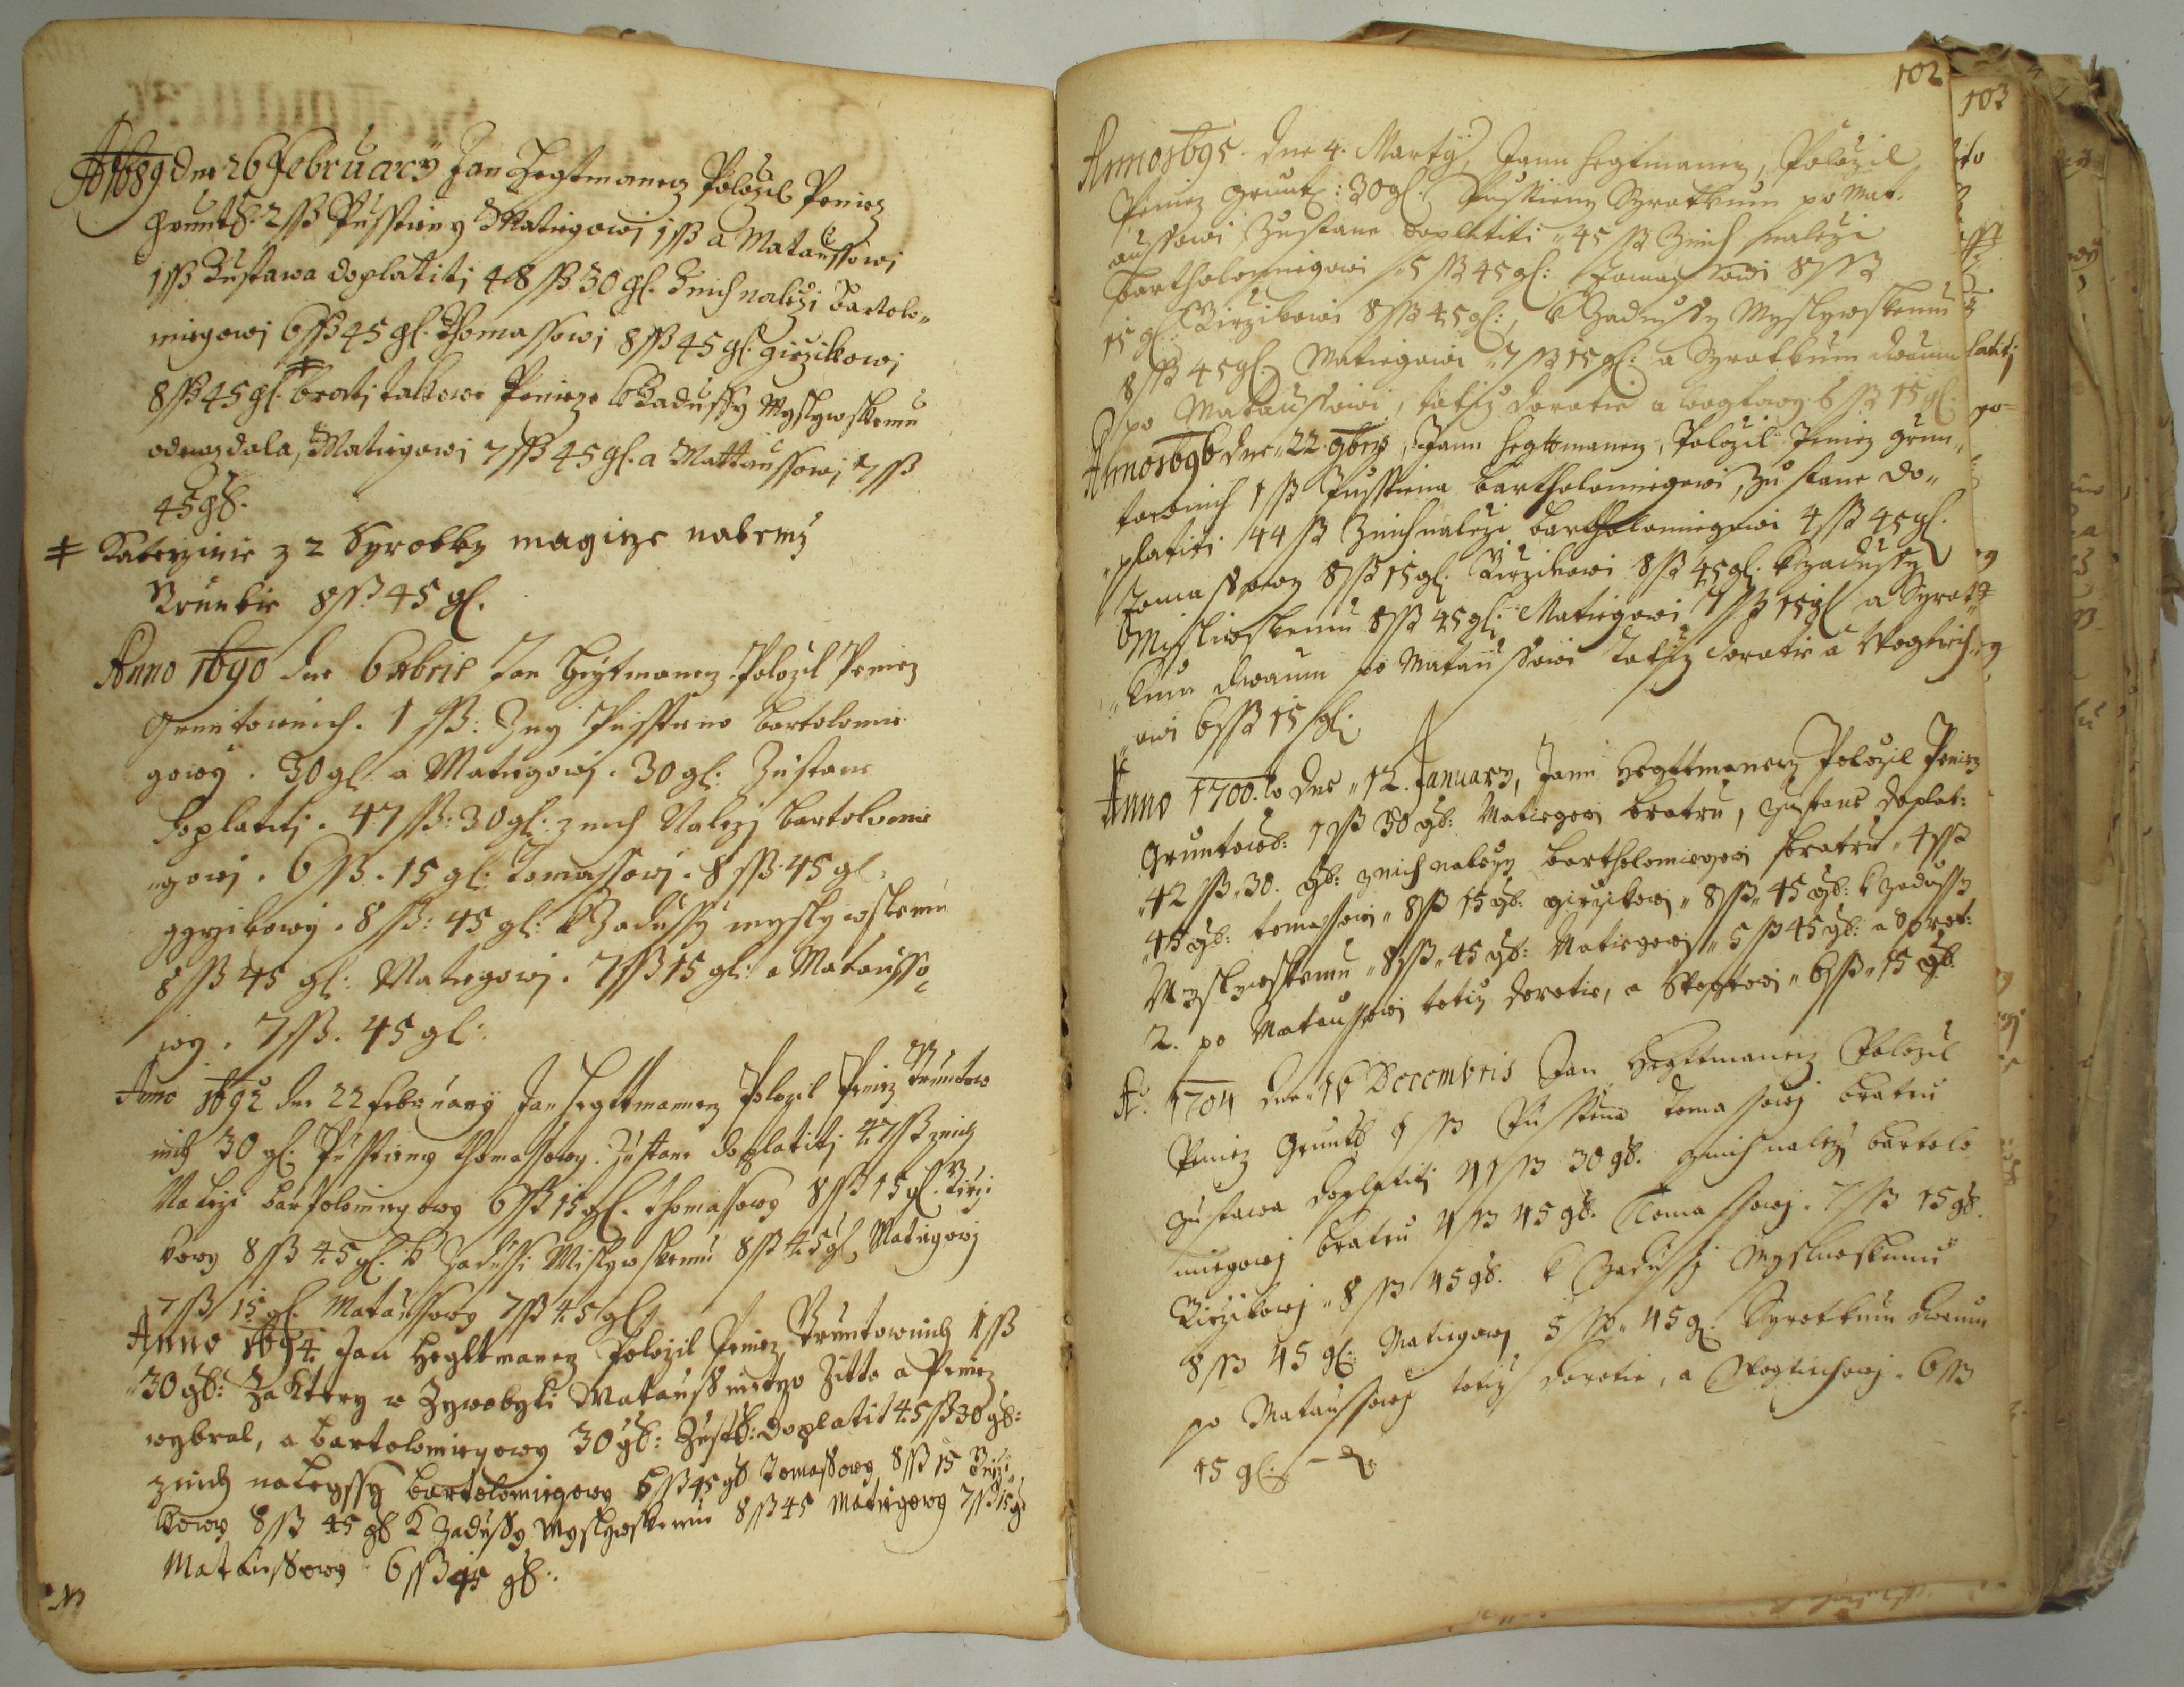 Ao 1689 dne 26 February Jan Hegtmanecz Položil Peniez
Grunt: 2 ßß Pusstieny Matiegowi 1 ßß a Mataussowi
1 ßß Zustawa doplatiti 48 ßß 30 gl. Znich naležj Bartolo„
miegowj 6 ßß 45 gl. Thomassowi 8 ßß 45 gl. girzikowj
8 ßß 45 gl. ‡ bratj takowe Penieze k Zadussy Myslywskemu
odewzdala, Matiegowj 7 ßß 45 gl. a Mattaussowj 7 ßß
45 gl.
‡ Katerzinie z 2 Syrotky magicze na temž
Gruntie 8 ßß 45 gl.
Anno 1690 dne 6 Xbris Jan Heytmanecz Položil Peniez
Gruntownich. 1 ßß: Zny Pusstieno Bartolomie
gowy. 30 gl. a Matiegowj. 30 gl: Zustane
doplatitj. 47 ßß: 30 gl: znich Naležj Bartolomie
„gowj. 6 ßß. 15 gl: Tomassowj. 8 ßß. 45 gl.
ggrzikowy. 8 ßß: 45 gl: k Zadussy myslywskemu
8 ßß 45 gl: Matiegowj. 7 ßß 15 gl: a Matausso„
wy. 7 ßß. 45 gl:
Anno 1692 dne 22 february Jan Hegttmanecz Položil Peniez Gruntow
nich 30 gl. Pusstieny thomassowy. Zustane doplatitj 47 ßß znich
Naleži bartolomiegowy 6 ßß 15 gl. thomassowy 8 ßß 15 gl. Girži
kowy 8 ßß 45 gl. k Zadussi Mislywskemu 8 ßß 45 gl. Matiegowj
7 ßß 15 gl. Mataussowy 7 ßß 45 gl.
Anno 1694. Jan Hegttmanecz Položil Peniez Gruntownich 1 ßß
30 gl: Za kttery w Zywobyti Matauss nietco Zitta a Peniez
wybral, a bartolomiegowy 30 gl: Zust: doplatit 45 ßß 30 gl:
znich nalegssy bartolomiegowy 5 ßß 45 gl Tomassowy 8 ßß 15 Girži
kowy 8 ßß 45 gl K Zadussy Myslywskemu 8 ßß 45 Matiegowy 7 ßß 15 gl
Mataussowy 6 ßß 45 gl:
102
Anno 1695. dne 4. Martÿ, Jann Hegtmanecz, Položil
Peniez Grunt: 30 gl. Pusstieny Syrotkum po Mat„
aussowi Zustane doplatiti „ 45 ßß Znich naleži
Bartholomiegowi „ 5 ßß 45 gl: Tomassowi 8 ßß
15 gl: Girzikowi 8 ßß 45 gl:, k Zadussy Myslywskemu
8 ßß 45 gl. Matiegowi „ 7 ßß 15 gl: a Syrotkum dwaum
po Mataussowi, totiz dorotie a 6 ßß 15 gl.
Anno 1696 dne „ 22. 9bris, Jann Hegttmanecz, Položil Peniez Grun„
townich 1 ßß Pusstiena Bartholomiegowi, Zustane do„
„platiti 44 ßß Znich naleži Bartholomiegowi 4 ßß 45 gl.
Tomassowy 8 ßß 15 gl. Girzikowi 8 ßß 45 gl. k zadussy
Misliwskemu 8 ßß 45 gl: Matiegowi 7 ßß 15 gl a Syrot„
„kum dwaum po Mataussowi Totiz dorotie a
„owi 6 ßß 15 gl.
Anno 1700. dne „ 12. January, Jann Hegttmanecz Položil Peniez
Gruntow: 1 ßß 30 gl: Matiegowi bratru, zustane doplat:
„ 42 ßß „ 30. gl: znich naležy bartholomiegowj bratru „ 4 ßß
„ 45 gl: tomassowj „ 8 ßß 15 gl: girzikowj „ 8 ßß „ 45 gl: k zadussy
Myslywskemu „ 8 ßß „ 45 gl: Matiegowj „ 5 ßß 45 gl: a Syrot:
2. po Mataussowi totiz dorotie, a „ 6 ßß „ 15 gl.
Ao. 1704 dne „ 16 Decembris Jan Hegttmanecz Položil
Peniez Grunt: 1 ßß Pusstiena Tomassowj bratru
Zustawa doplatitj 41 ßß 30 gl. znich naležy bartolo
miegowj bratru 4 ßß 45 gl. Tomassowj. 7 ßß 15 gl.
Girzikowj „ 8 ßß 45 gl. k Zadussj Mysliwskemu
8 ßß 45 gl: Matiegowj 5 ßß „ 45 gl. Syrotkum dwaum
po Mataussowj totiz dorotie, a 6 ßß
15 gl:
103
latitj
po=